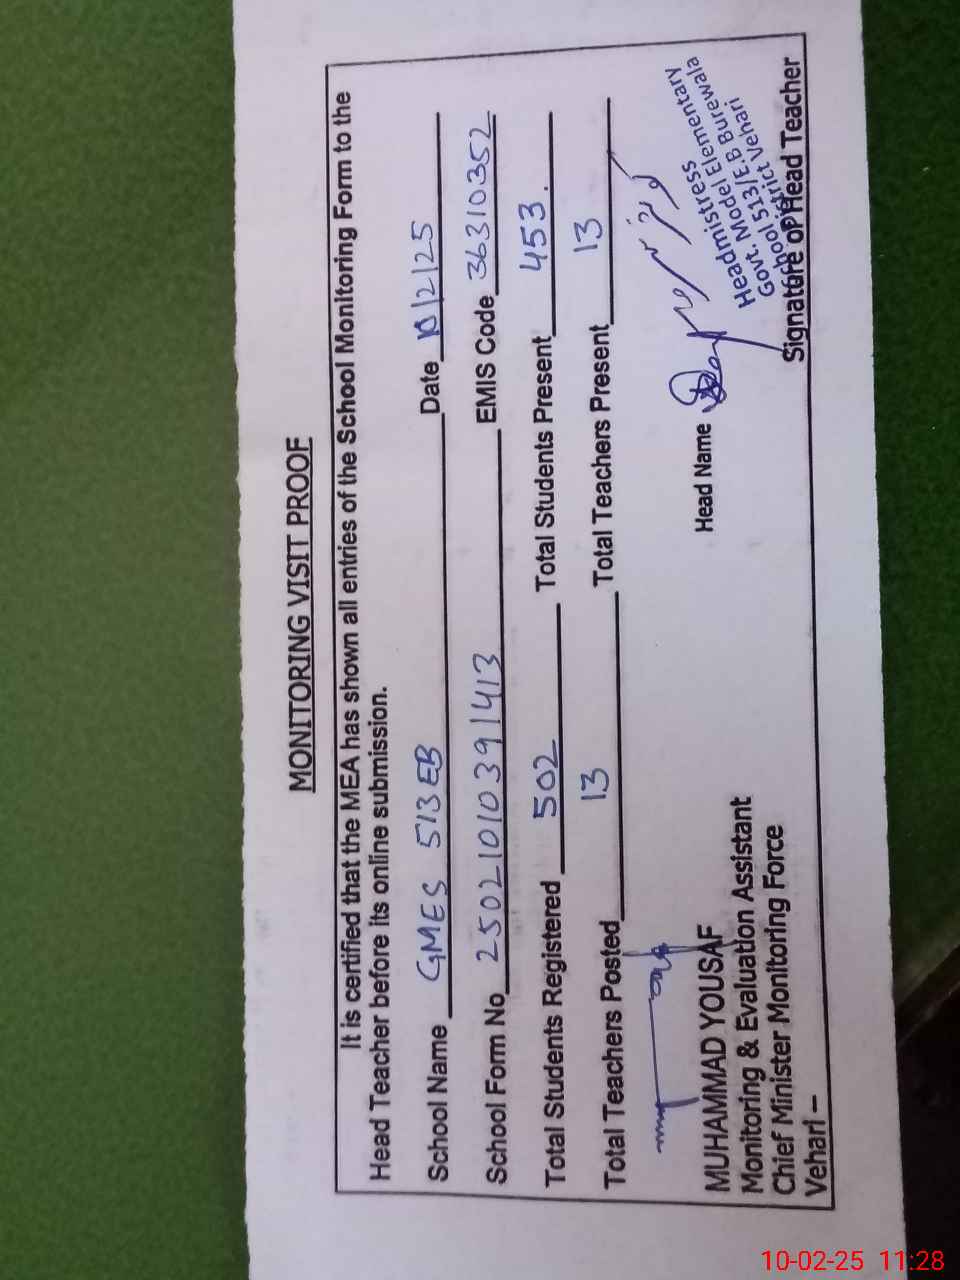 MONITORING VISIT PROOF
It is certified that the MEA has shown all entries of the School Monitoring Form to the
Head Teacher before its online submission.
School Name GMES 513 EB Date 10/2/25
School Form No 2502101039 1413 EMIS Code 36310352
Total Students Registered 502 Total Students Present 453.
Total Teachers Posted 13 Total Teachers Present 13
MUHAMMAD YOUSAF
Monitoring & Evaluation Assistant
Chief Minister Monitoring Force
Vehari –
Head Name
Headmistress
Govt. Model Elementary
School 513/E.B Burewala
District Vehari
Signature of Head Teacher
10-02-25 11:28